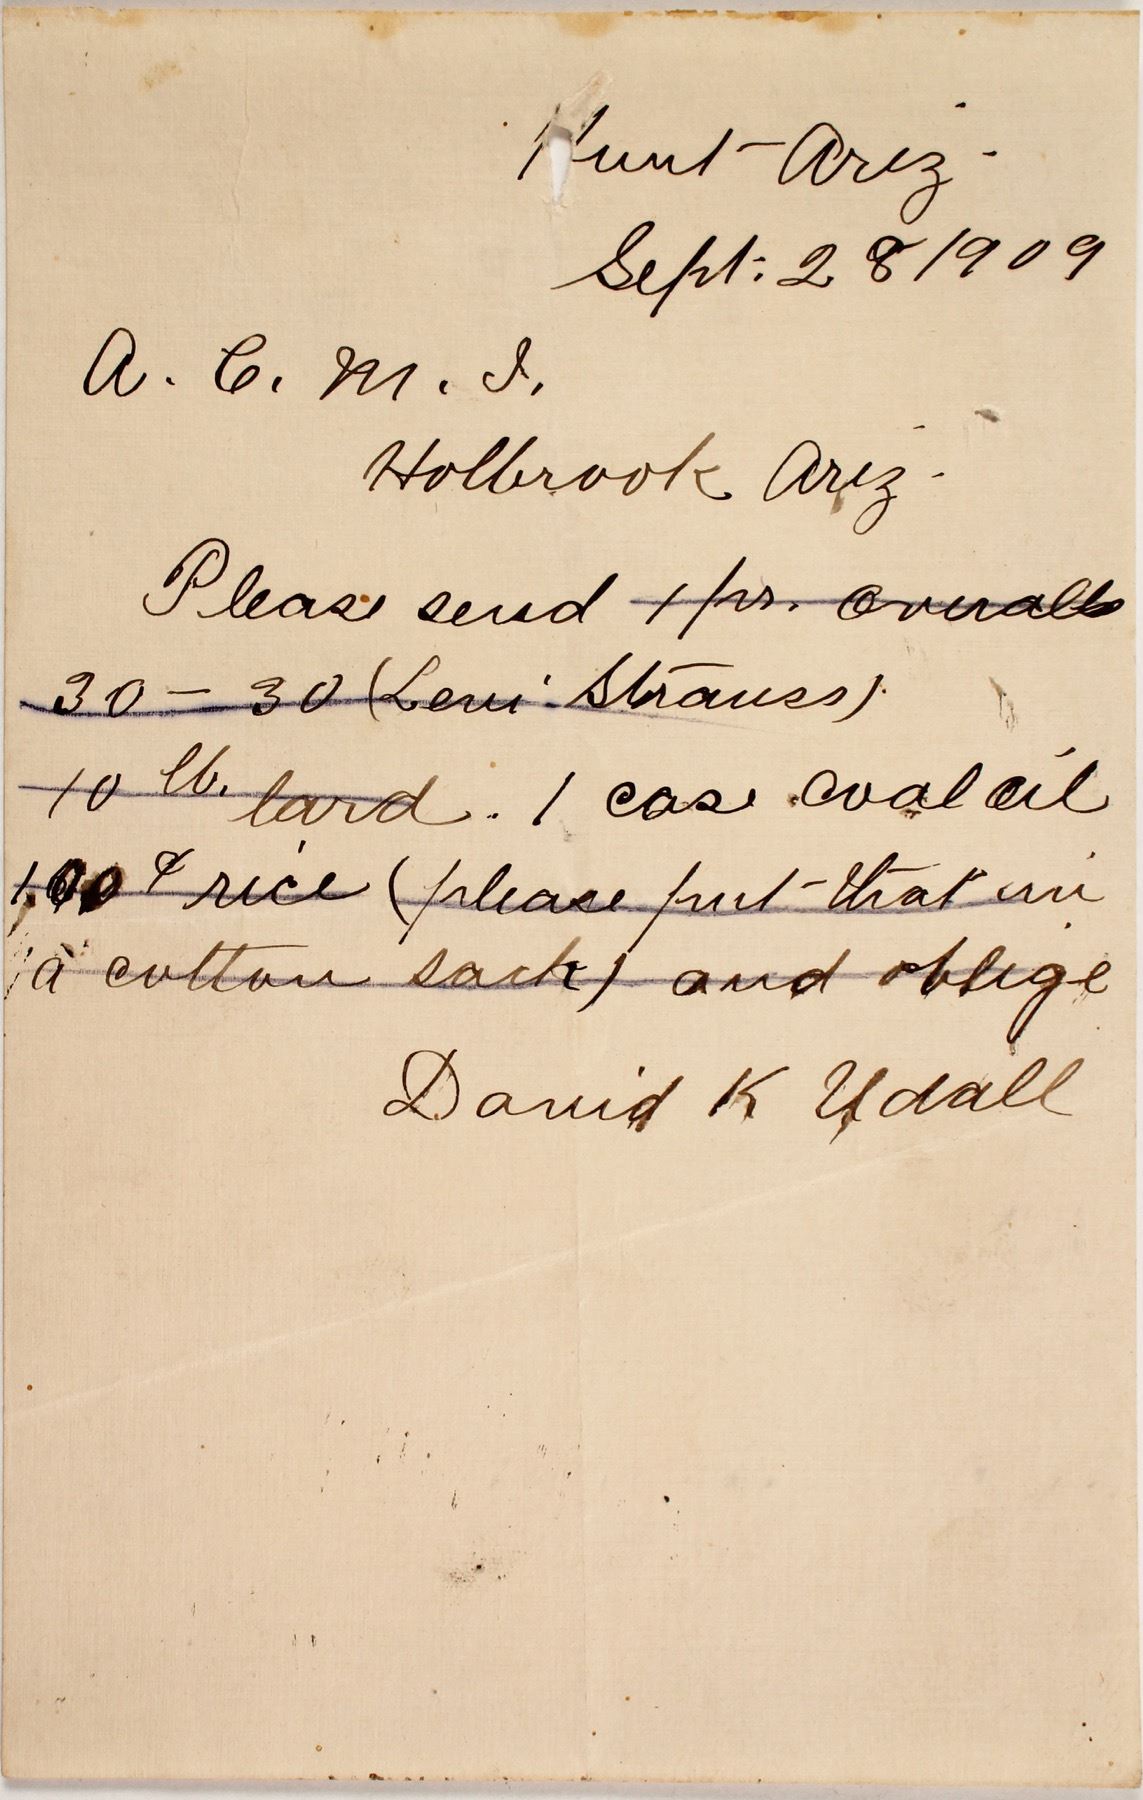 Hunt Ariz.
Sept. 28 1909
A. C. M. I.
Holbrook Ariz.
Please send 1 pr. overalls
30 - 30 (Levi Strauss).
10 lb. lard. 1 case coal oil
100 # rice (please put that in
a cotton sack) and oblige
David K Udall